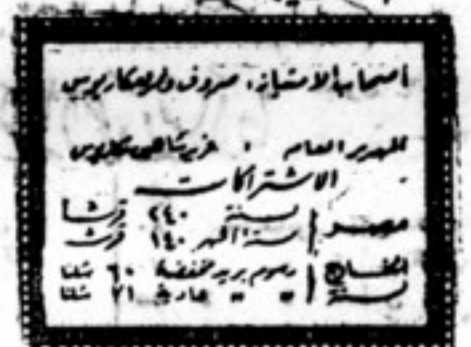 أصحاب الامتياز: صروف ونمر ومكاريوس
المدير العام :
الاشتراكات
مصر سنة ٢٤٠ قرشا
ستة أشهر ١٤٠ قرش
الخارج رسوم بريد مخفضة ٦٠ شلنا
سنة " " عادية ٧١ شلنا